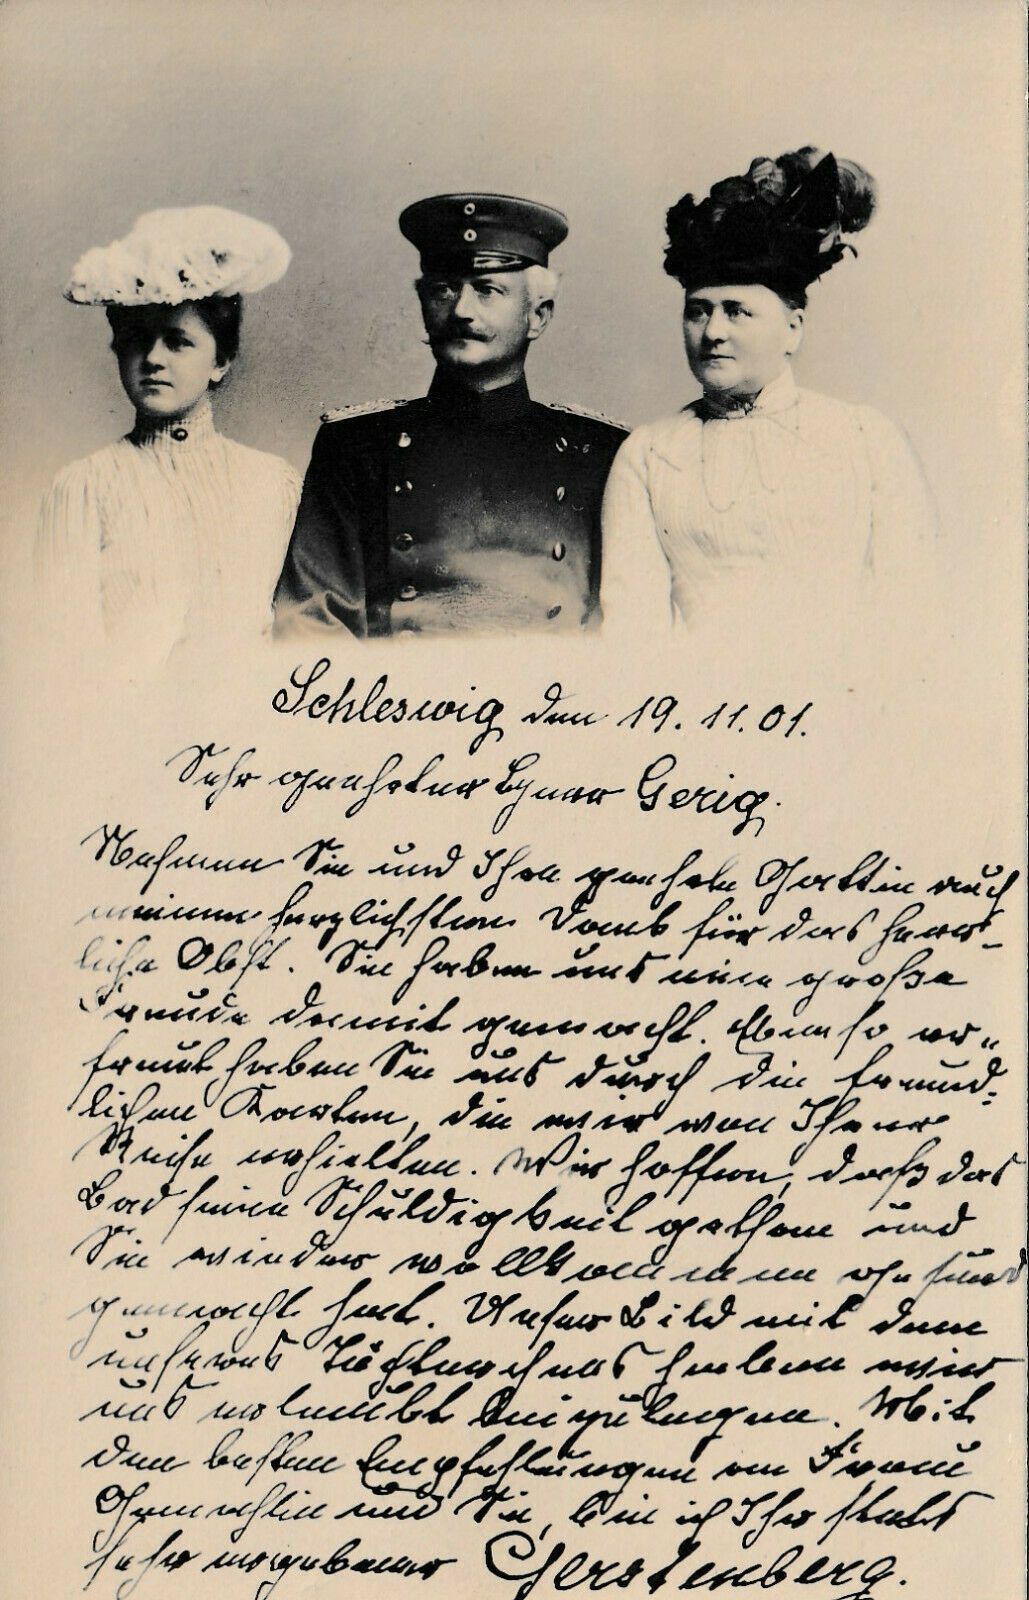 Schleswig den 19. 11. 01.
Sehr geehrter Herr Gerig.
Nehmen Sie und Ihre geehrte Gattin auch
meinen herzlichsten Dank für das herr-
liche Obst. Sie haben uns eine große
Freude damit gemacht. Ebenso er-
freut haben Sie uns durch die freund-
lichen Karten, die wir von Ihrer
Reise erhielten. Wir hoffen, daß das
Bad seine Schuldigkeit gethan und
Sie wieder vollkommen gesund
gemacht hat. Unser Bild mit dem
unseres Töchterchens haben wir
uns erlaubt beizulegen. Mit
den besten Empfehlungen an Frau
Gemahlin und Sie, bin ich Ihr stets
sehr ergebener Gerstenberg.